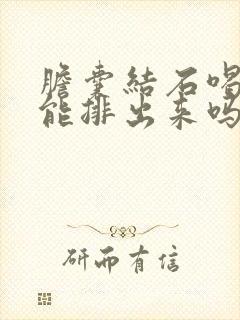 膽囊結石喝
能排出来吗
研而有信